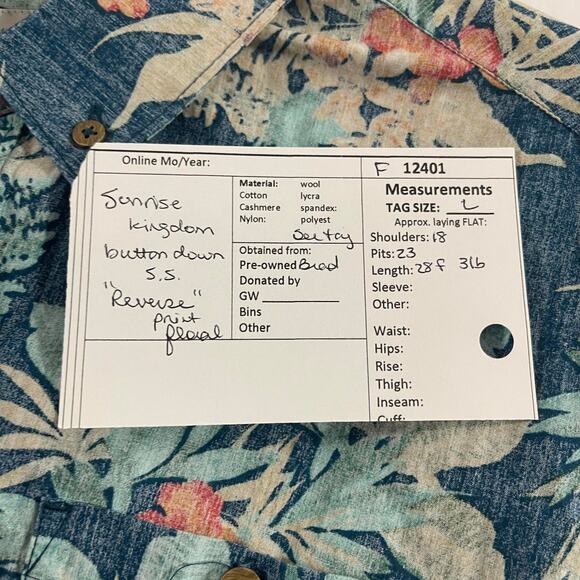 Online Mo/Year:
F 12401
Sunrise
kingdom
button down
S.S.
"Reverse"
print
floral
Material: wool
Cotton lycra
Cashmere spandex:
Nylon: polyest
See tag
Obtained from:
Pre-owned Brad
Donated by
GW
Bins
Other
Measurements
TAG SIZE: L
Approx. laying FLAT:
Shoulders: 18
Pits: 23
Length: 28f 31b
Sleeve:
Other:
Waist:
Hips:
Rise:
Thigh:
Inseam:
Cuff: